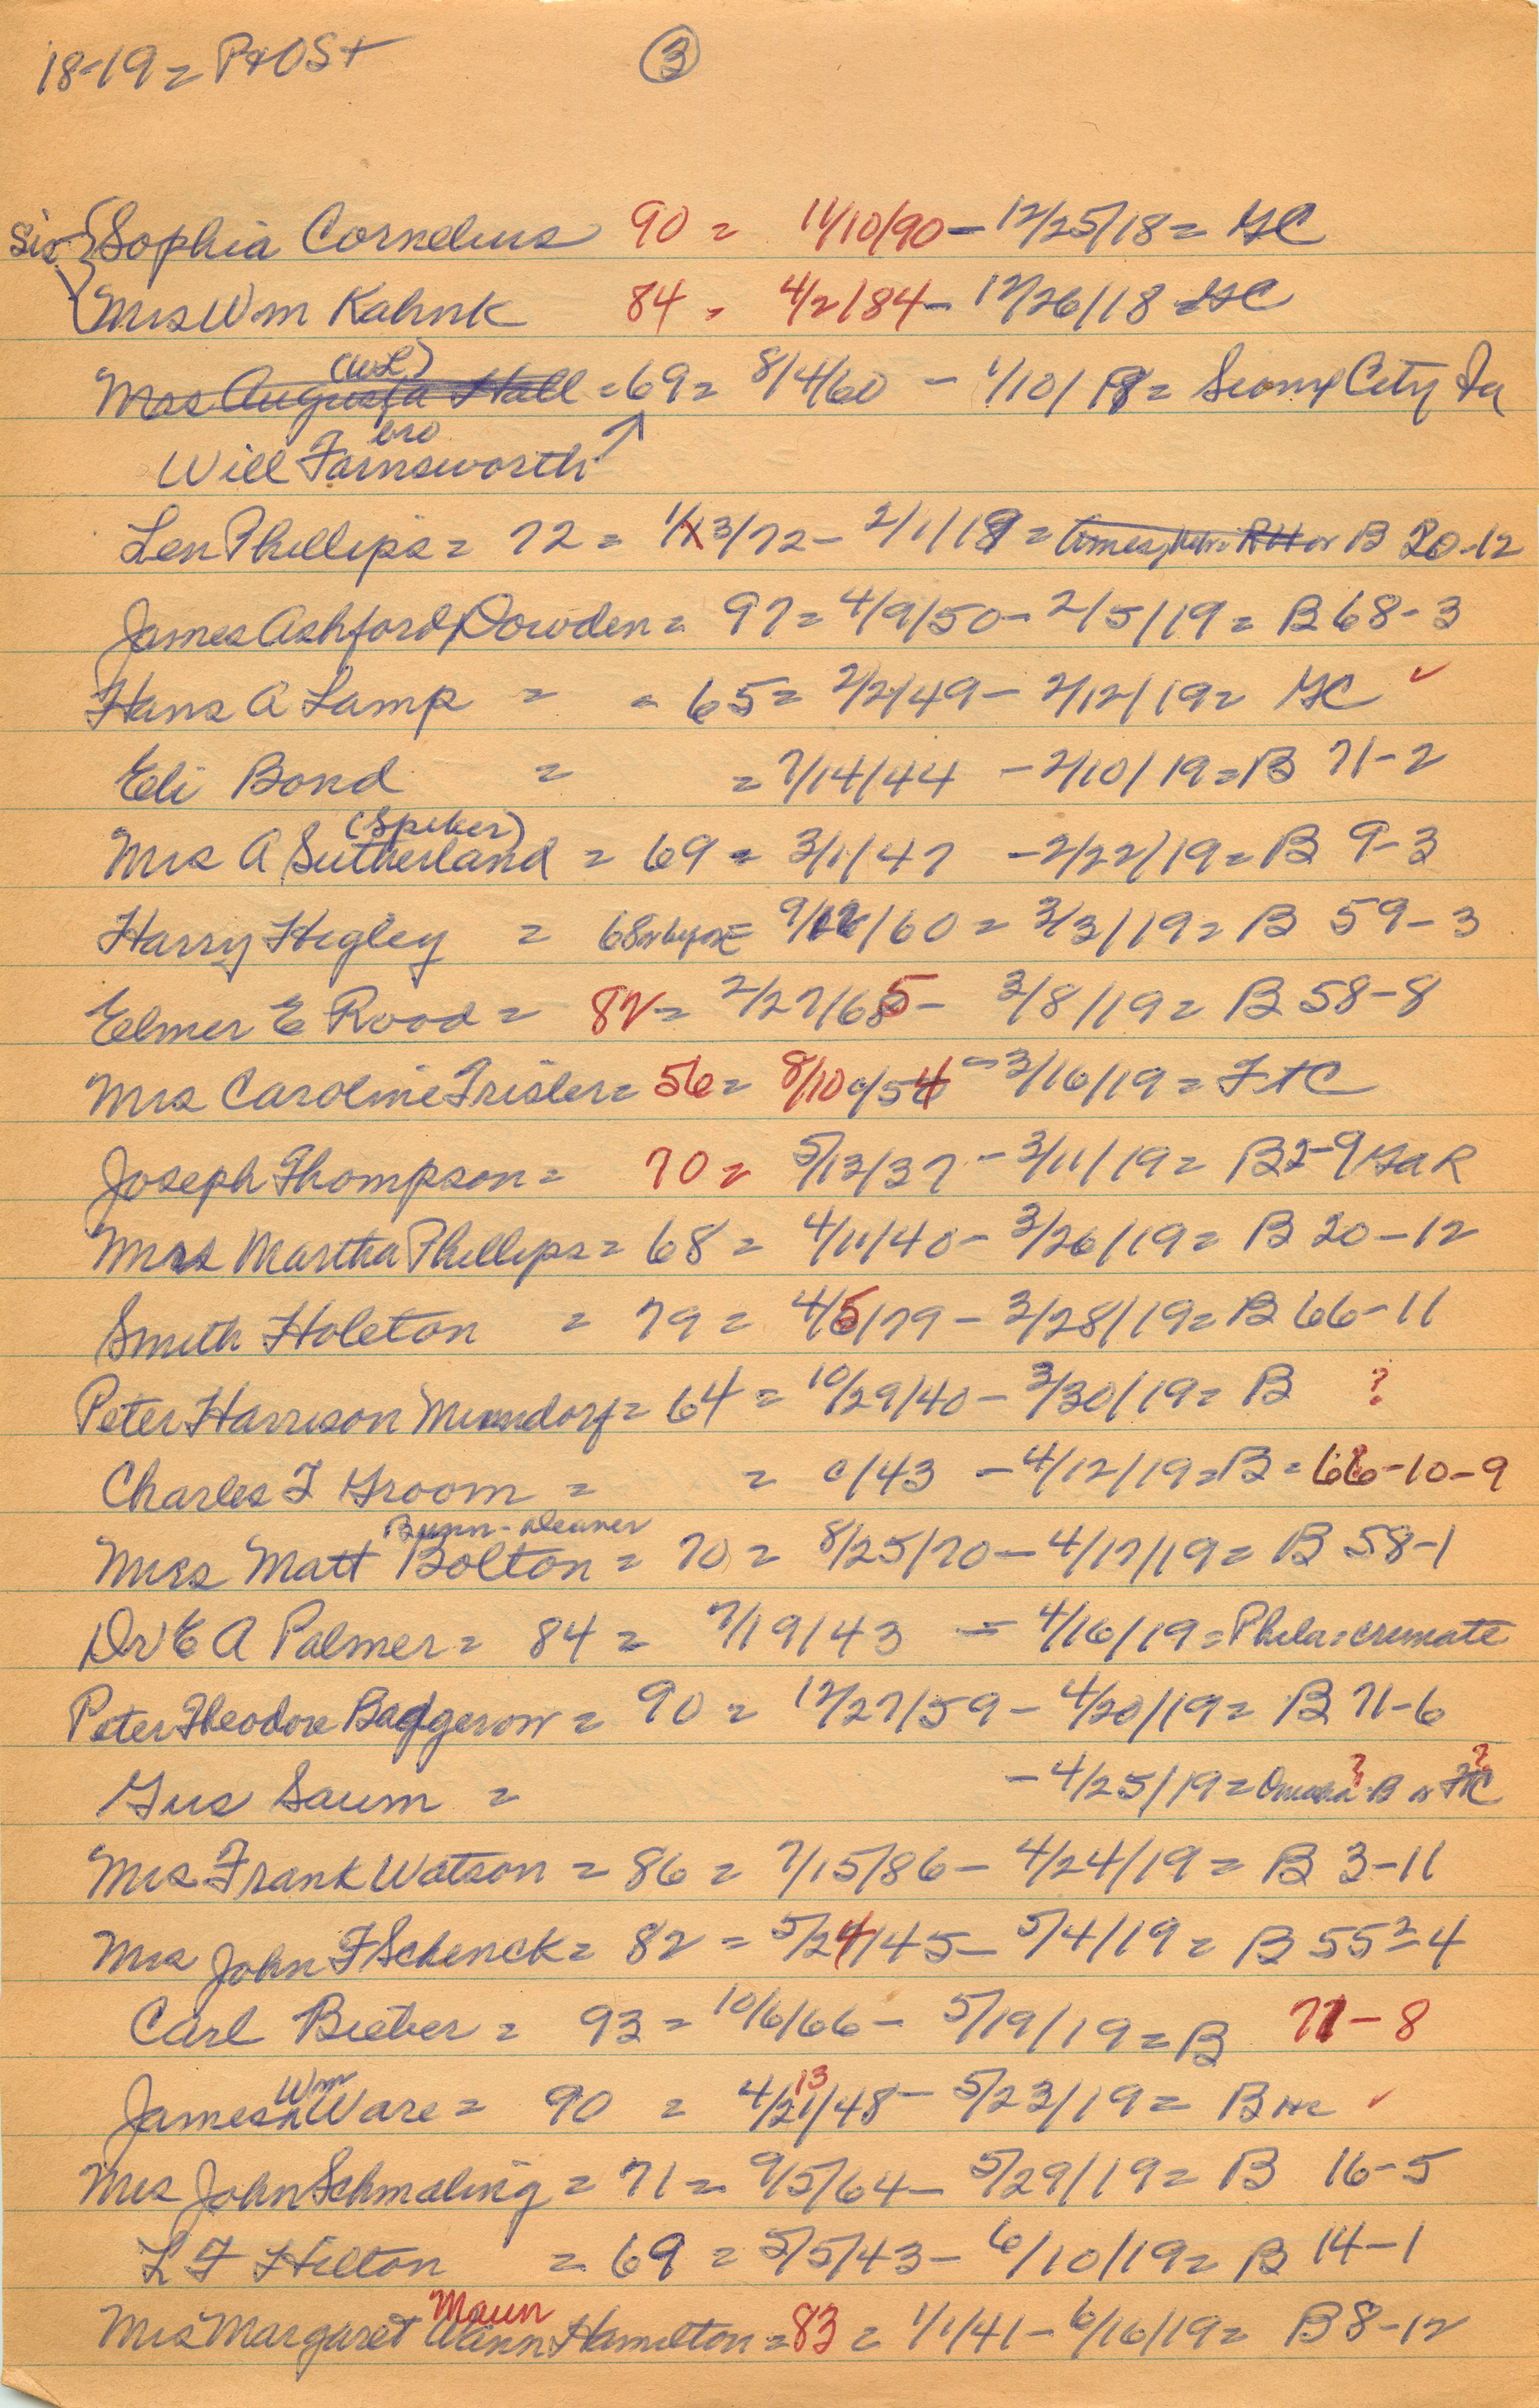 18-19 = P+OS+ ③
Sis { Sophia Cornelius 90 = 11/10/90 - 12/25/18 = GC
Mrs Wm Kahnk 84 = 4/2/84 - 12/26/18 = GC
(W.L.)
Mrs Augusta Hall = 69 = 8/4/60 - 1/10/19 = Sioux City Ia
bro
Will Farnsworth ↗
Len Phillips = 72 = 1/13/72 - 2/1/19 = B 20-12
James Ashford Dowden = 97 = 4/9/50 - 2/5/19 = B 68-3
Hans A Lamp = = 65 = 2/2/49 - 2/12/19 = GC ✓
Eli Bond = = 7/14/44 - 2/10/19 = B 71-2
(Speker)
Mrs A Sutherland = 69 = 3/1/47 - 2/22/19 = B 9-3
Harry Higley = 68 or before = 9/12/60 = 3/3/19 = B 59-3
Elmer E Rood = 82 = 2/27/65 - 3/8/19 = B 58-8
Mrs Caroline Frisler = 56 = 8/10/54 - 3/16/19 = FtC
Joseph Thompson = 70 = 5/13/37 - 3/11/19 = B 2-9 GaR
Mrs Martha Phillips = 68 = 4/11/40 - 3/26/19 = B 20-12
Smith Holeton = 79 = 4/5/79 - 3/28/19 = B 66-11
Peter Harrison = 64 = 10/29/40 - 3/30/19 = B ?
Charles F Groom = = c/43 - 4/12/19 = B = 66-10-9
Bunn-Weaver
Mrs Matt Bolton = 70 = 8/25/70 - 4/17/19 = B 58-1
Dr E A Palmer = 84 = 7/19/43 - 4/16/19 = Phila = cremate
Peter Theodore Badgerow = 90 = 12/27/59 - 4/20/19 = B 71-6
Gus Saum = - 4/25/19 = Omaha ? B or FtC ?
Mrs Frank Watson = 86 = 7/15/86 - 4/24/19 = B 3-11
Mrs John F Schenck = 82 = 5/24/45 - 5/4/19 = B 55 2-4
Carl Bieber = 93 = 10/6/66 - 5/19/19 = B 71-8
Wm 13
James Ware = 90 = 4/21/48 - 5/23/19 = B ✓
Mrs John Schmaling = 71 = 9/5/64 - 5/29/19 = B 16-5
L F Hilton = 69 = 5/5/43 - 6/10/19 = B 14-1
Maun
Mrs Margaret Wann Hamilton = 83 = 1/1/41 - 6/16/19 = B 8-12